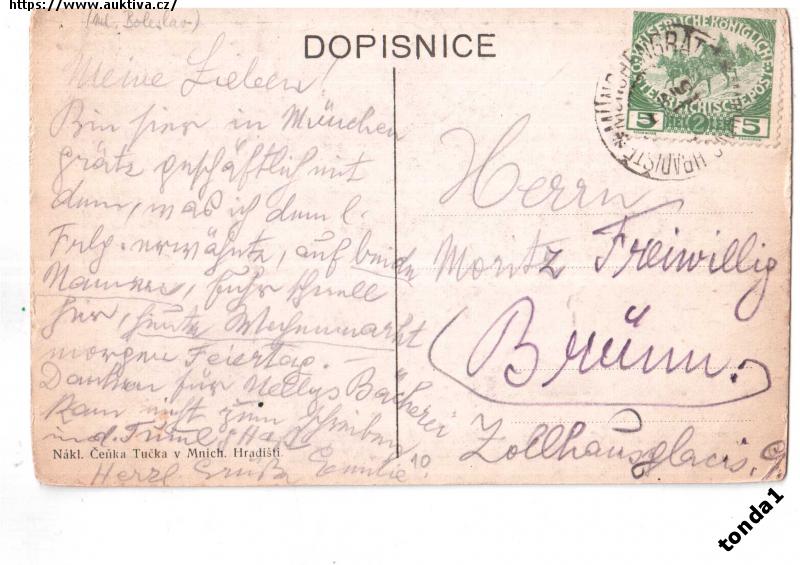 https://www.auktiva.cz/
DOPISNICE
Meine Lieben!
Bin hier in München
grätz geschäftlich mit
dem, was ich dem l.
erwähnte, auf beide
Namen, fuhr schnell
hier, heute Wochenmarkt
morgen Feiertag. –
Danken für Nellys Bäckerei
Kam nicht zum Schreiben
Herzl Grüße Emilie
Nákl. Čeňka Tučka v Mnich. Hradišti.
10
KAISERLICHE KÖNIGLICHE
ÖSTERREICHISCHE POST
5 2 5
Herrn
Moritz Freiwillig
Brünn.
Zollhausglacis, 9.
tonda1